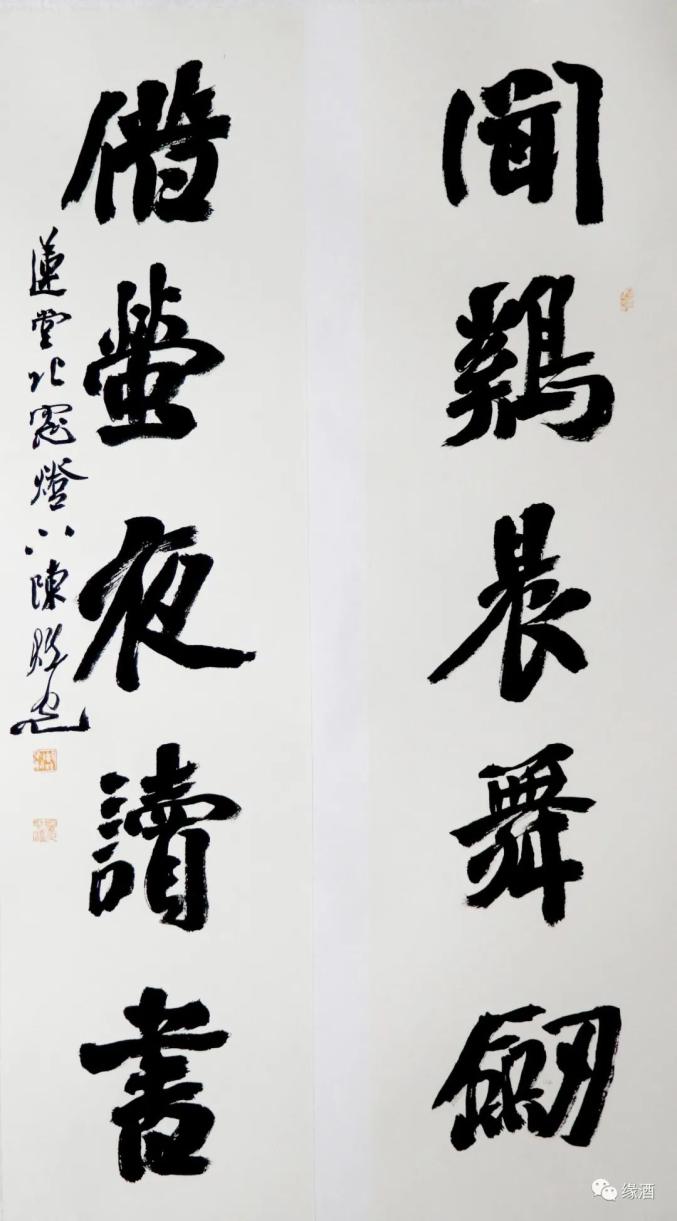 聞鷄晨舞劒
借螢夜讀書
蓮堂北窓燈下陳
缘酒